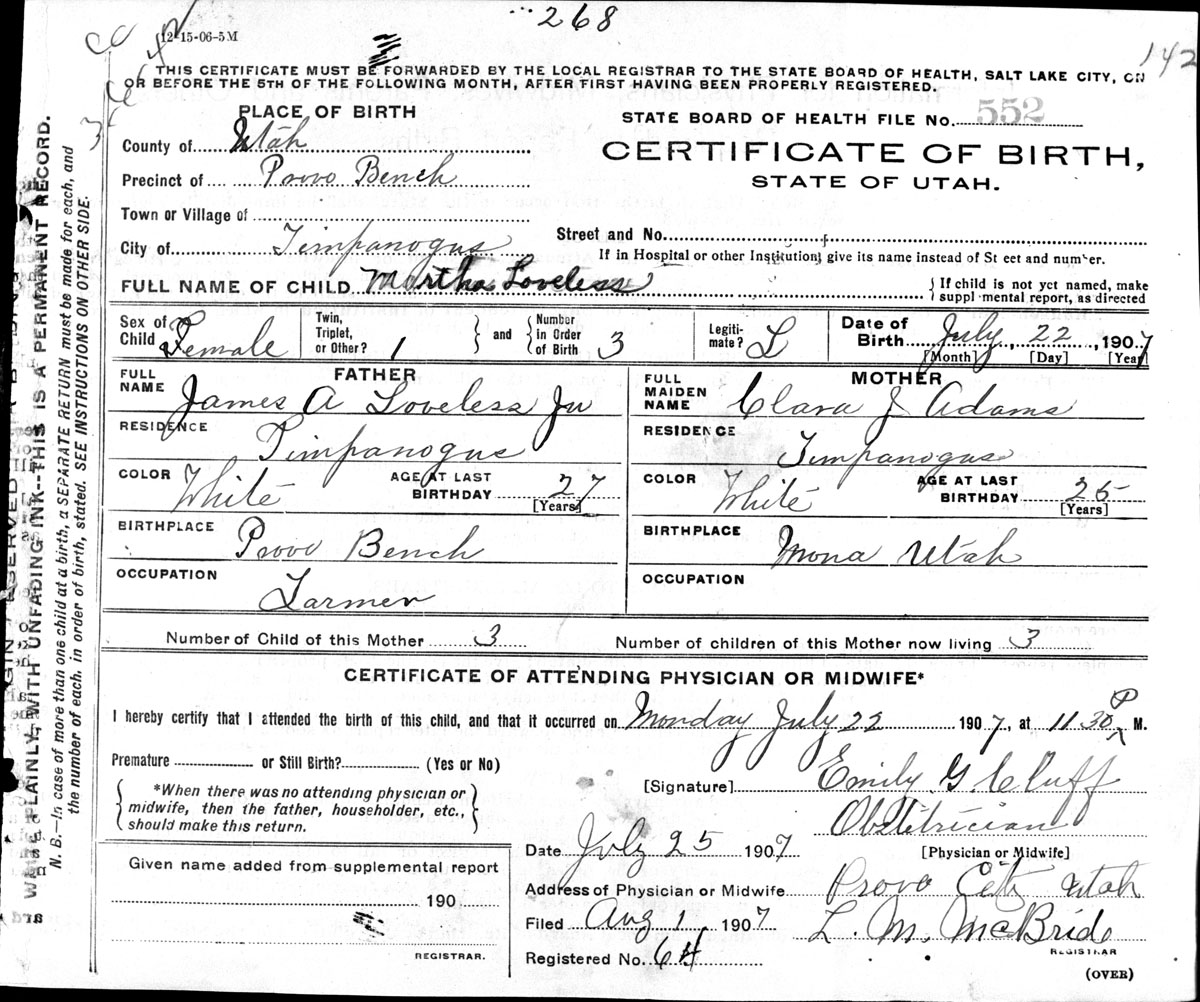 268
12-15-06-5M
142
THIS CERTIFICATE MUST BE FORWARDED BY THE LOCAL REGISTRAR TO THE STATE BOARD OF HEALTH, SALT LAKE CITY, ON
OR BEFORE THE 5TH OF THE FOLLOWING MONTH, AFTER FIRST HAVING BEEN PROPERLY REGISTERED.
PLACE OF BIRTH
STATE BOARD OF HEALTH FILE NO. 552
County of Utah
CERTIFICATE OF BIRTH,
STATE OF UTAH.
Precinct of Provo Bench
Town or Village of
City of Timpanogus
Street and No.
If in Hospital or other Institution, give its name instead of St eet and number.
FULL NAME OF CHILD Martha Loveless
If child is not yet named, make suppl mental report, as directed
Sex of Child Female
Twin, Triplet, or Other? 1
and Number in Order of Birth 3
Legiti-mate? L
Date of Birth July 22, 1907
[Month] [Day] [Year]
FATHER
FULL NAME James A Loveless Ju
RESIDENCE Timpanogus
COLOR White
AGE AT LAST BIRTHDAY 27
[Years]
BIRTHPLACE Provo Bench
OCCUPATION Farmer
MOTHER
FULL MAIDEN NAME Clara J Adams
RESIDENCE Timpanogus
COLOR White
AGE AT LAST BIRTHDAY 25
[Years]
BIRTHPLACE Mona Utah
OCCUPATION
Number of Child of this Mother 3
Number of children of this Mother now living 3
CERTIFICATE OF ATTENDING PHYSICIAN OR MIDWIFE*
I hereby certify that I attended the birth of this child, and that it occurred on Monday July 22 1907, at 11 30 P M.
Premature or Still Birth? (Yes or No)
*When there was no attending physician or
midwife, then the father, householder, etc.,
should make this return.
[Signature] Emily G. Cluff
Obstetrician
[Physician or Midwife]
Date July 25 1907
Address of Physician or Midwife Provo City Utah
Filed Aug 1, 1907
L. M. McBride
REGISTRAR
Registered No. 64
(OVER)
Given name added from supplemental report
190
REGISTRAR.
WRITE PLAINLY, WITH UNFADING INK--THIS IS A PERMANENT RECORD.
N. B.—In case of more than one child at a birth, a SEPARATE RETURN must be made for each, and
the number of each, in order of birth, stated. SEE INSTRUCTIONS ON OTHER SIDE.